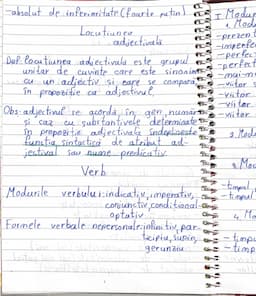 -absolut de inferioritate (foarte puțin)
Locuțiunea
adjectivală
Def: locuțiunea adjectivală este grupul
unitar de cuvinte care este sinonim
cu un adjectiv și care se compară
în propoziție ca adjectivul.
Obs: adjectivul se acordă în gen, număr
și caz cu substantivele determinate
în propoziție adjectivală îndeplinește
funcția sintactică de atribut ad-
jectival sau nume predicativ
Verb
Modurile verbului: indicativ, imperativ,
conjunctiv, condițional-
optativ
Formele verbale nepersonale: infinitiv, par-
ticipiu, supin,
gerunziu
I Modur
1. Modu
-prezent
-imperfec
-perfec
-perfect
-mai-m
-viitor s
-viitor
-viitor
-viitor
2. Mod
3. Mo
-timpul
-timpul
4. Mo
-timpu
-timp